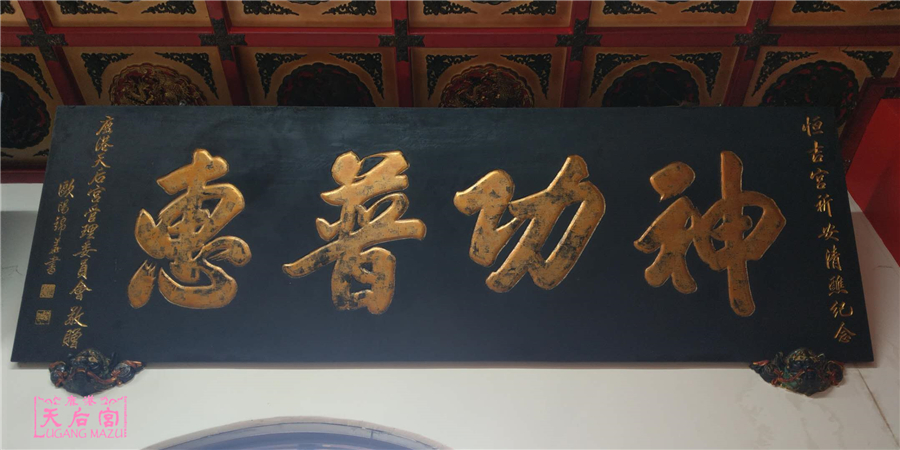 恒吉宮祈安清醮紀念
神功普惠
鹿港天后宮管理委員會敬贈
歐陽錦華書
鹿港
天后宮
LUGANG MAZU